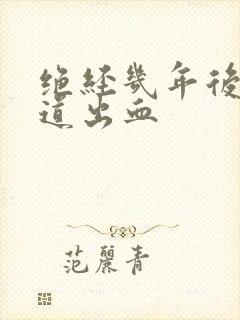 绝经几年後
道出血
范丽青